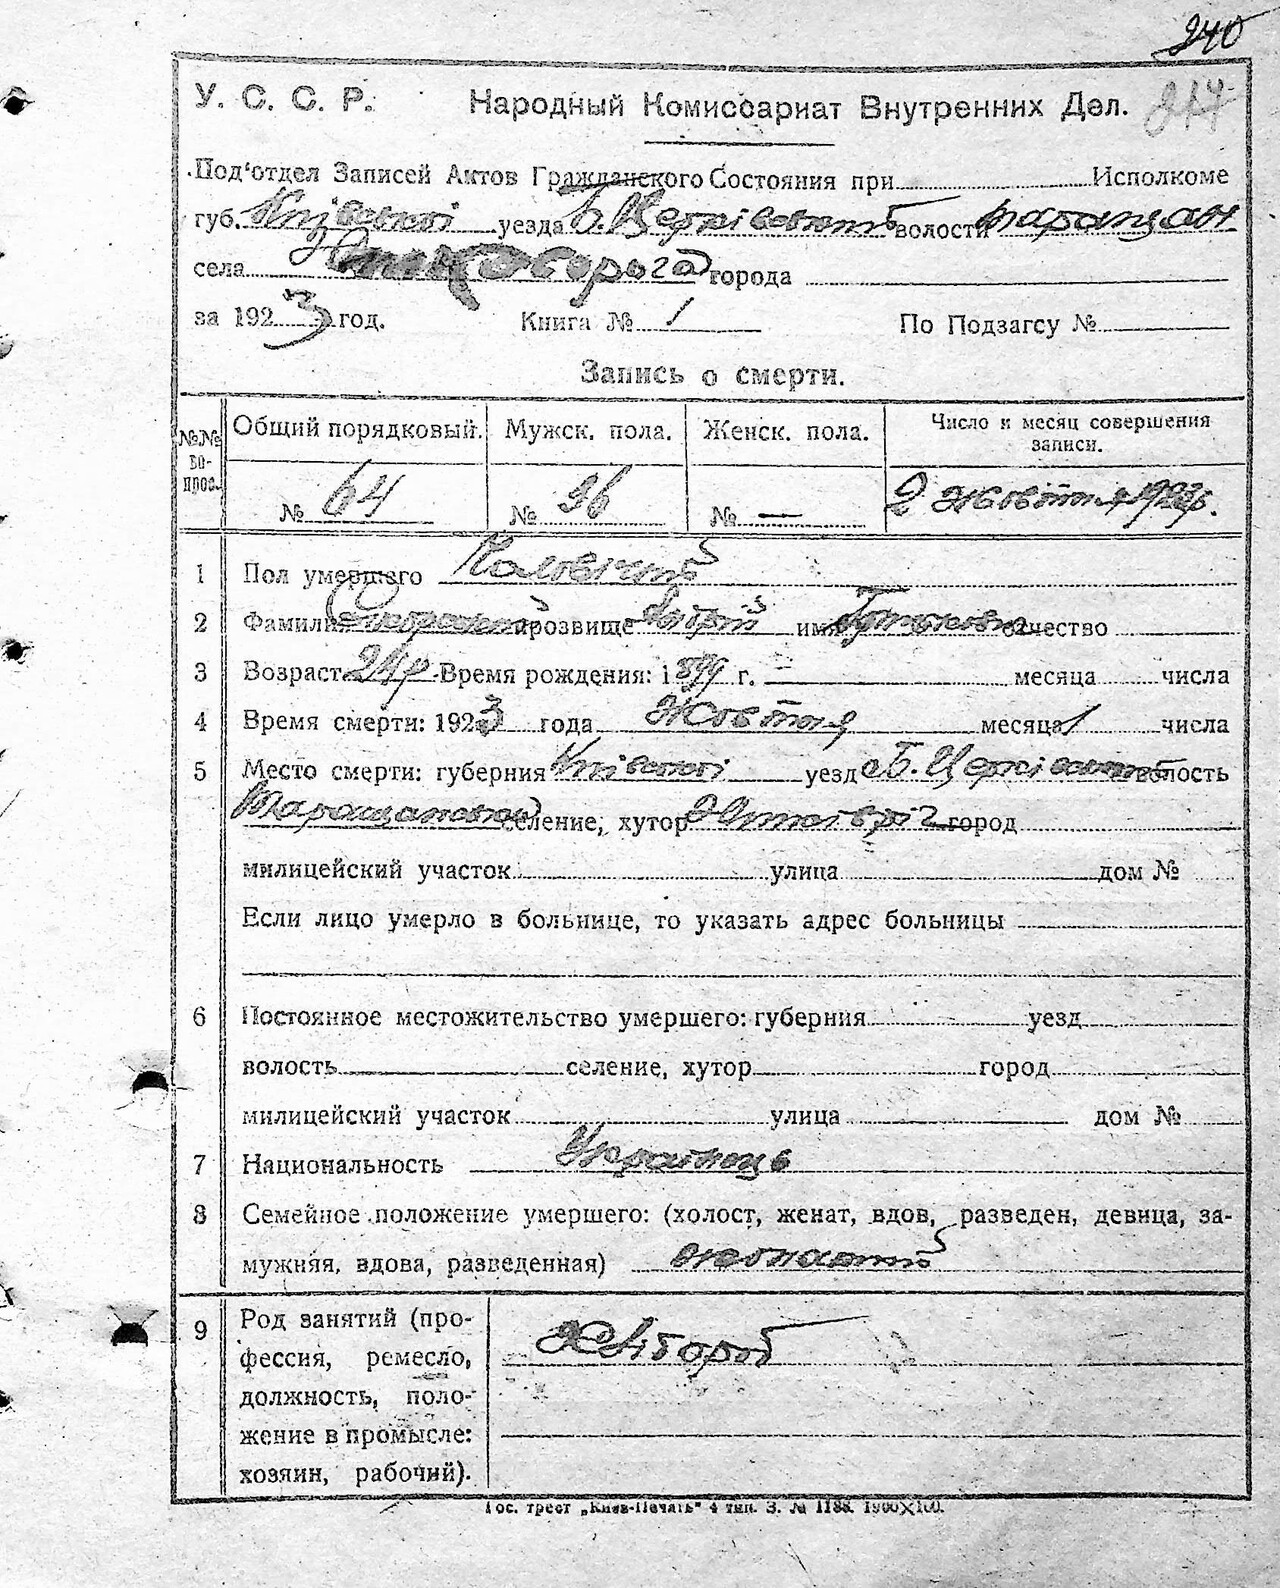 240
У. С. С. Р. Народный Комиссариат Внутренних Дел. 217
Под'отдел Записей Актов Гражданского Состояния при Исполкоме
губ. Київської уезда Б. Церківський волости Таращан
села города
за 1923 год. Книга № 1 По Подзагсу №
Запись о смерти.
№№ вопрос. Общий порядковый. Мужск. пола. Женск. пола. Число и месяц совершения записи.
№ 64 № 36 № — 2 Жовтня 1923 р.
1 Пол умершего Чоловічий
2 Фамилия прозвище имя отчество
3 Возраст 24 р. Время рождения: 1899 г. месяца числа
4 Время смерти: 1923 года Жовтня месяца 1 числа
5 Место смерти: губерния Київської уезд Б. Церківський волость
Таращанської селение, хутор город
милицейский участок улица дом №
Если лицо умерло в больнице, то указать адрес больницы
6 Постоянное местожительство умершего: губерния уезд
волость селение, хутор город
милицейский участок улица дом №
7 Национальность Українець
8 Семейное положение умершего: (холост, женат, вдов, разведен, девица, за-
мужняя, вдова, разведенная) жонатий
9 Род занятий (про-
фессия, ремесло, Хлібороб
должность, поло-
жение в промысле:
хозяин, рабочий).
Гос. трест „Киев-Печать" 4 тип. З. № 1188. 1900×100.